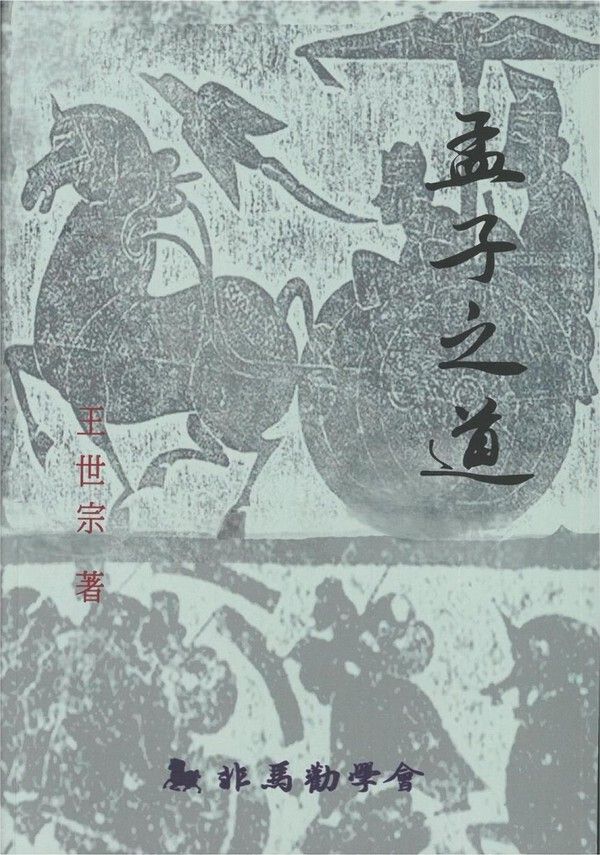 孟子之道
王世宗 著
非馬勸學會